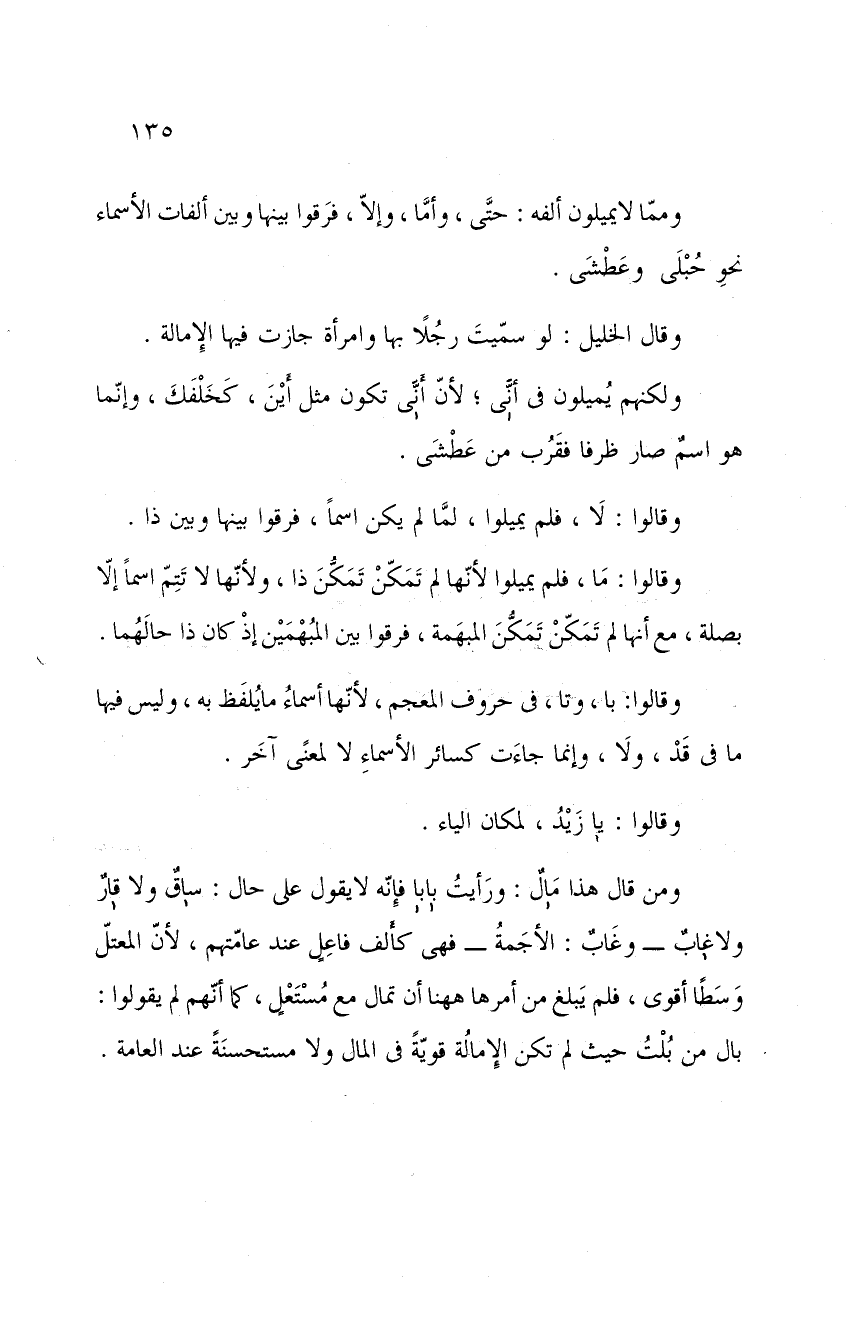 ١٣٥
وممّا لا يميلون ألفه : حتَّى ، وأمَّا ، وإلاّ ، فرَقوا بينها وبين ألفات الأسماء
نحوِ حُبْلَى وعَطْشَى .
وقال الخليل : لو سمّيتَ رجُلًا بها وامرأة جازت فيها الإِمالة .
ولكنهم يُميلون فى أنَّى ؛ لأنّ أَنَّى تكون مثل أَيْنَ ، كَخَلْفَكَ ، وإنّما
هو اسمٌ صار ظرفا فقَرُب من عَطْشَى .
وقالوا : لَا ، فلم يميلوا ، لمَّا لم يكن اسماً ، فرقوا بينها وبين ذا .
وقالوا : مَا ، فلم يميلوا لأنّها لم تَمَكّنْ تَمَكُّنَ ذا ، ولأنّها لا تَتِمّ اسماً إلّا
بصلة ، مع أنها لم تَمَكّنْ تَمَكُّنَ المبهَمة ، فرقوا بين المُبْهَمَيْن إذْ كان ذا حالَهُما .
وقالوا: با ، وتا ، فى حروف المعجم ، لأنّها أسماءُ مايُلفَظ به ، وليس فيها
ما فى قَدْ ، ولَا ، وإنما جاءَت كسائر الأسماءِ لا لمعنًى آخَر .
وقالوا : يا زَيْدُ ، لمكان الياء .
ومن قال هذا مَالٌ : ورَأيتُ بابا فإنّه لايقول على حال : ساقٌ ولا قارٌ
ولاغابٌ — وغَابٌ : الأجَمةُ — فهى كأَلف فاعِلٍ عند عامّتهم ، لأنّ المعتلّ
وَسَطًا أقوى ، فلم يَبلغ من أمرها ههنا أن تمال مع مُسْتَعْلٍ ، كما أنّهم لم يقولوا :
بال من بُلْتُ حيث لم تكن الإِمالُة قويّةً فى المال ولا مستحسنَةً عند العامة .